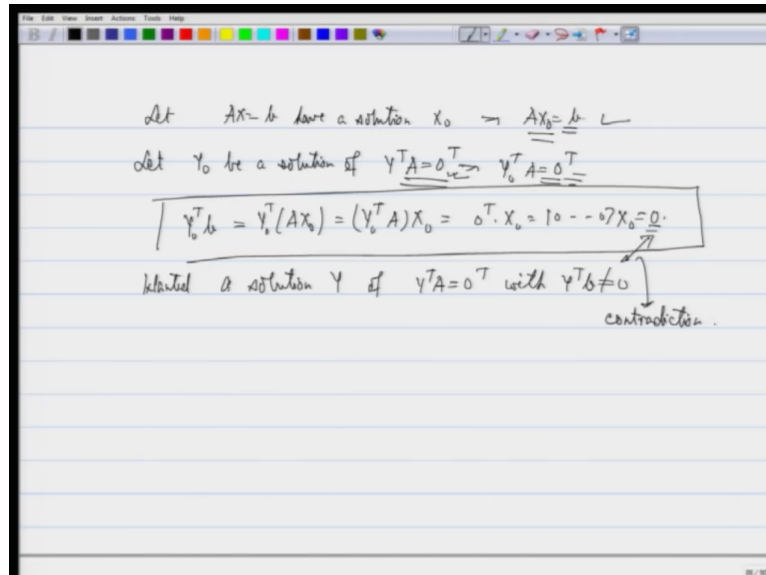 File Edit View Insert Actions Tools Help
B I
Let Ax = b have a solution x₀ → Ax₀ = b
Let Y₀ be a solution of Yᵀ A = 0ᵀ → Y₀ᵀ A = 0ᵀ
Y₀ᵀ b = Y₀ᵀ (A x₀) = (Y₀ᵀ A) x₀ = 0ᵀ · x₀ = [0 - - 0] x₀ = 0.
Wanted a solution Y of Yᵀ A = 0ᵀ with Yᵀ b ≠ 0
contradiction.